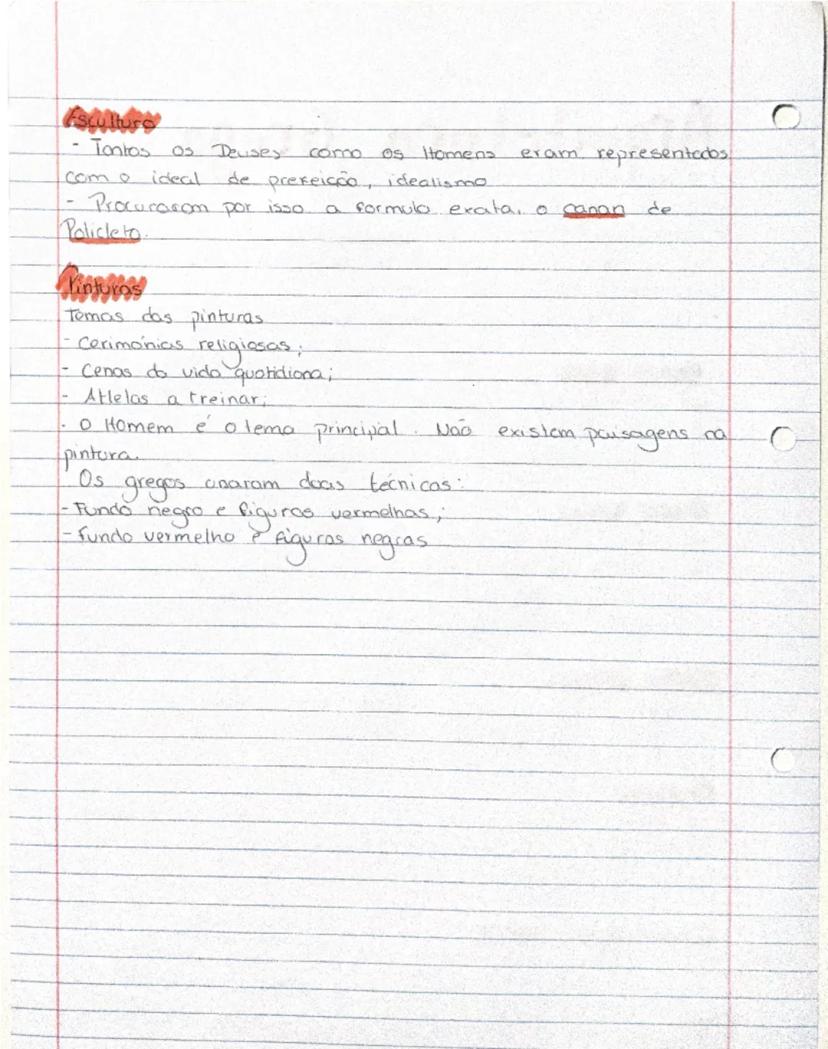 Escultura
- Tantos os Deuses como os Homens eram representados
com o ideal de prefeição, idealismo
- Procuraram por isso a formula exata, o canan de
Policleto.
Pinturas
Temas das pinturas
- Cerimónias religiosas;
- Cenas da vida quotidiana;
- Atletas a treinar;
. O Homem é o tema principal. Não existem paisagens na
pintura.
Os gregos criaram duas técnicas:
- Fundo negro e figuras vermelhas;
- Fundo vermelho e figuras negras